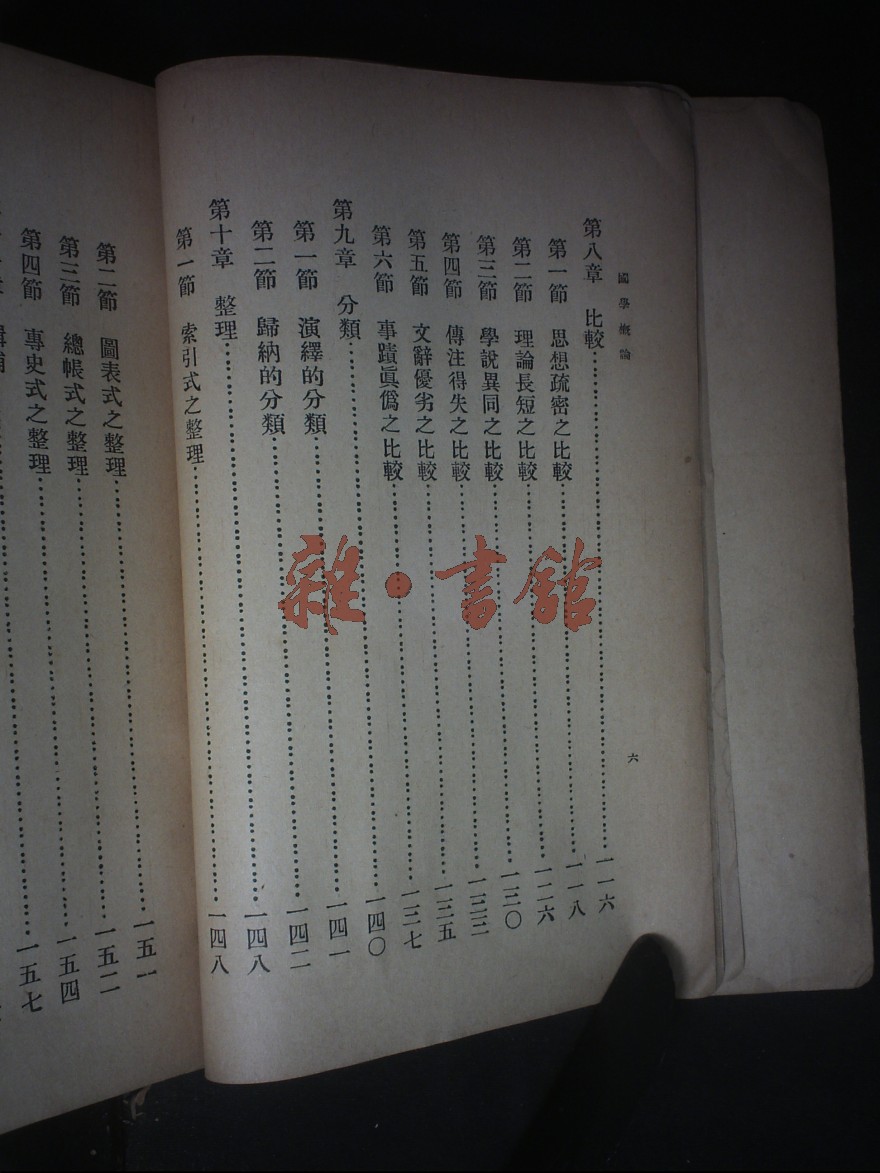 國學概論
第八章 比較……一一六
第一節 思想疏密之比較……一一八
第二節 理論長短之比較……一二六
第三節 學說異同之比較……一三〇
第四節 傳注得失之比較……一三三
第五節 文辭優劣之比較……一三五
第六節 事蹟眞僞之比較……一三七
第九章 分類……一四〇
第一節 演繹的分類……一四一
第二節 歸納的分類……一四二
第十章 整理……一四八
第一節 索引式之整理……一四八
六
第二節 圖表式之整理……一五一
第三節 總帳式之整理……一五二
第四節 專史式之整理……一五四
一五七
雜·書館